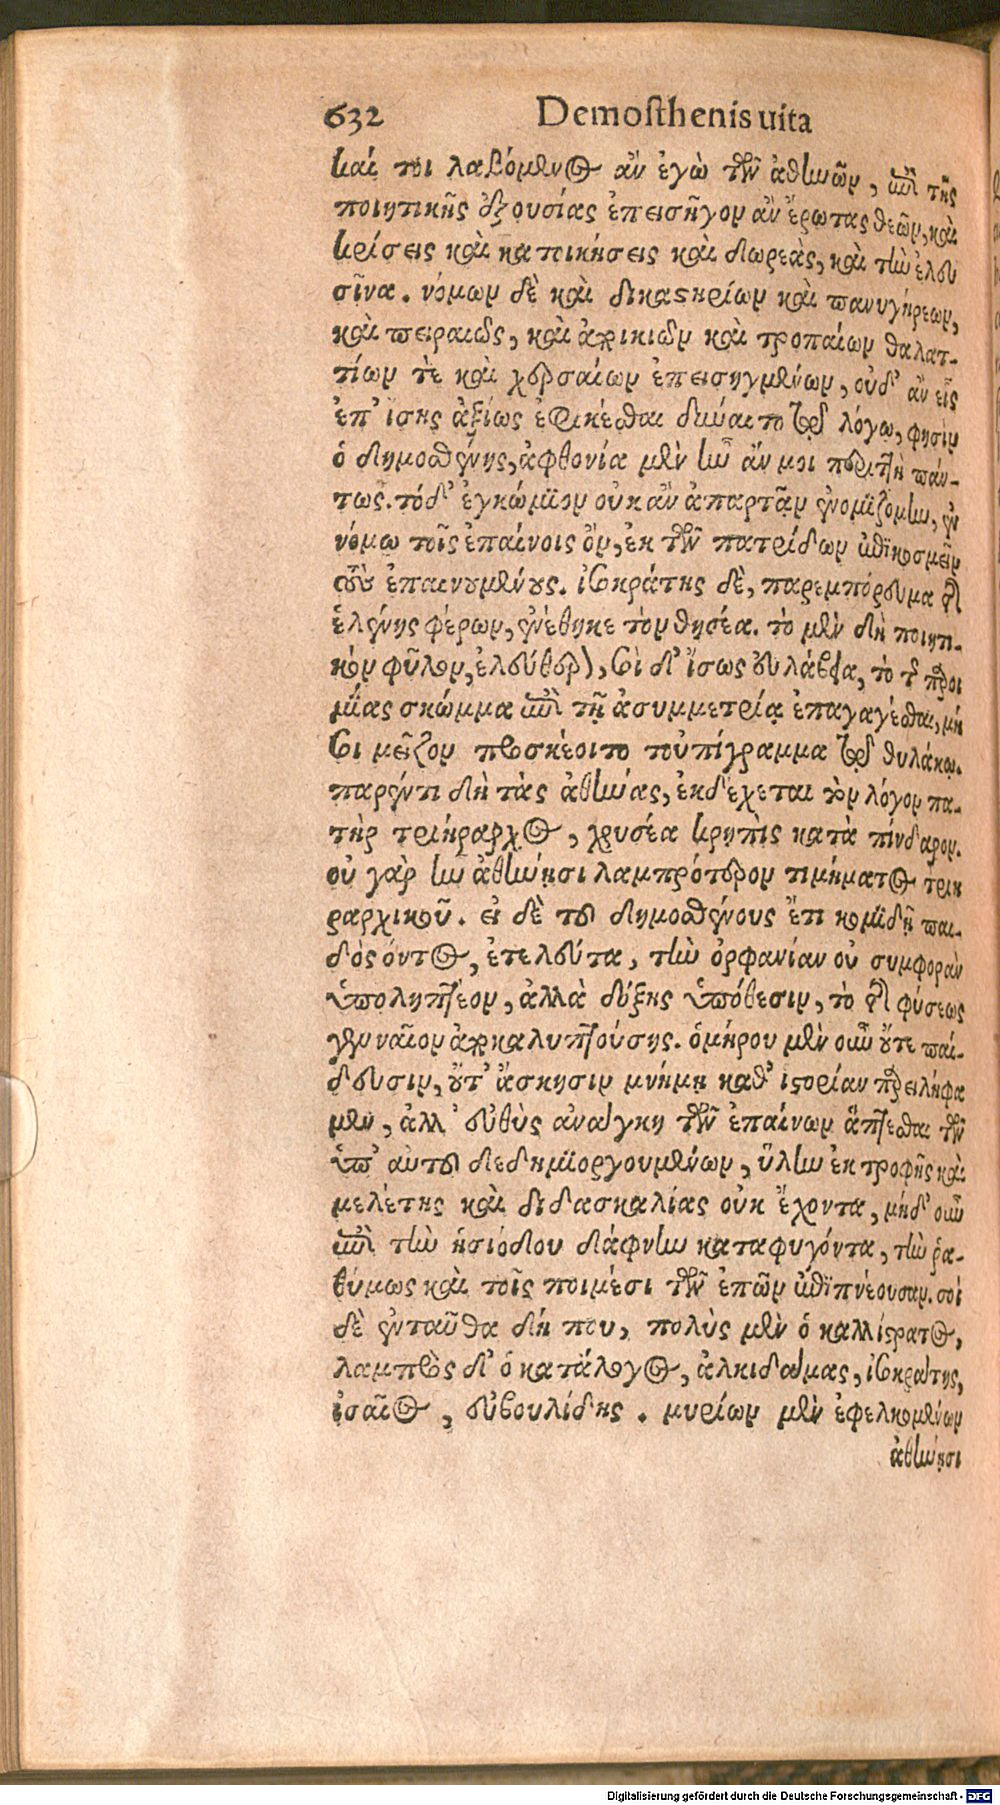 632 Demosthenis uita
καί τοι λαβόμενος ἂν ἐγὼ τῶν ἀθηνῶν, ἐπὶ τῆς
ποιητικῆς ἐξουσίας ἐπεισῆγον ἂν ἔρωτας θεῶν, καὶ
κρίσεις καὶ κατοικήσεις καὶ δωρεὰς, καὶ τὴν ἐλευ
σῖνα. νόμων δὲ καὶ δικαστηρίων καὶ πανυγήρεων,
καὶ πειραιῶς, καὶ ἀκρικιῶν καὶ τροπαίων θαλατ-
τίων τὲ καὶ χερσαίων ἐπεισηγμένων, οὐδ' ἂν εἷς
ἐπ' ἴσης ἀξίως ἐφικέσθαι δύναιτο τῷ λόγῳ, φησὶν
ὁ δημοσθένης, ἀφθονία μὲν ἦν ἄν μοι περιττὴ πάν-
τως. τό δ' ἐγκώμιον οὐκ ἂν ἀπαρτᾶν ἐνομιζόμην, ἐν
νόμῳ τοῖς ἐπαίνοις ὂν, ἐκ τῶν πατρίδων ἐπικοσμεῖν
τοὺς ἐπαινουμένους. ἰσοκράτης δὲ, παρεμπόρευμα τῆς
ἑλένης φέρων, ἐνέθηκε τὸν θησέα. τὸ μὲν δὴ ποιητι-
κὸν φῦλον, ἐλεύθερον, σὺ δ' ἴσως εὐλάβῃα, τὸ τῆς προι
μίας σκῶμμα ἐπὶ τῇ ἀσυμμετρίᾳ ἐπαγαγέσθαι, μή
σοι μεῖζον προσκέοιτο τοὐπίγραμμα τῷ θυλάκῳ.
παρέντι δὴ τὰς ἀθήνας, ἐκδέχεται τὸν λόγον πα-
τὴρ τριήραρχος, χρυσέα κρηπὶς κατὰ πίνδαρον.
οὐ γὰρ ἦν ἀθήνησι λαμπρότερον τιμήματος τριη
ραρχικοῦ. εἰ δὲ τοῦ δημοσθένους ἔτι κομιδῇ παι-
δὸς ὄντος, ἐτελεύτα, τὴν ὀρφανίαν οὐ συμφορὰν
ὑποληπτέον, ἀλλὰ δόξης ὑπόθεσιν, τὸ τῆς φύσεως
γενναῖον ἀνακαλυπτούσης. ὁμήρου μὲν οὖν οὔτε παί-
δευσιν, οὔτ' ἄσκησιν μνήμῃ καθ' ἱστορίαν παρειλήφα
μεν, ἀλλ' εὐθὺς ἀνάγκη τῶν ἐπαίνων ἅπτεσθαι τῶν
ὑπ' αὐτοῦ δεδημιοργουμένων, ὕλην ἐκ τροφῆς καὶ
μελέτης καὶ διδασκαλίας οὐκ ἔχοντα, μηδ' οὖν
ἐπὶ τὴν ἡσιόδου δάφνην καταφυγόντα, τὴν ῥα-
θύμως καὶ τοῖς ποιμέσι τῶν ἐπῶν ἐπιπνέουσαν. σοὶ
δὲ ἐνταῦθα δή που, πολὺς μὲν ὁ καλλίστρατος,
λαμπρὸς δ' ὁ κατάλογος, ἀλκιδάμας, ἰσοκράτης,
ἰσαῖος, εὐβουλίδης. μυρίων μὲν ἐφελκομένων
ἀθήνησι
Digitalisierung gefördert durch die Deutsche Forschungsgemeinschaft - DFG